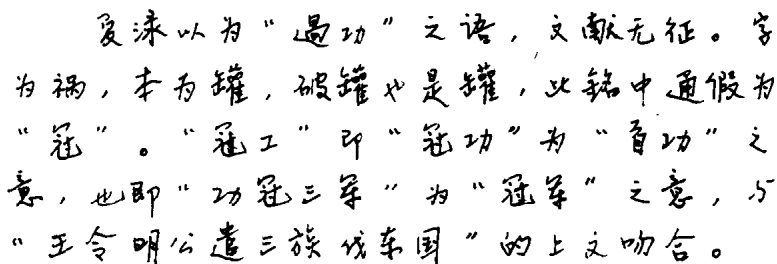 爰渌以为“過功”之语，文献无征。字
为祸，本为罐，破罐也是罐，此銘中通假为
“冠”。“冠工”即“冠功”为“首功”之
意，也即“功冠三军”为“冠军”之意，与
“王令明公遣三族伐东国”的上文吻合。